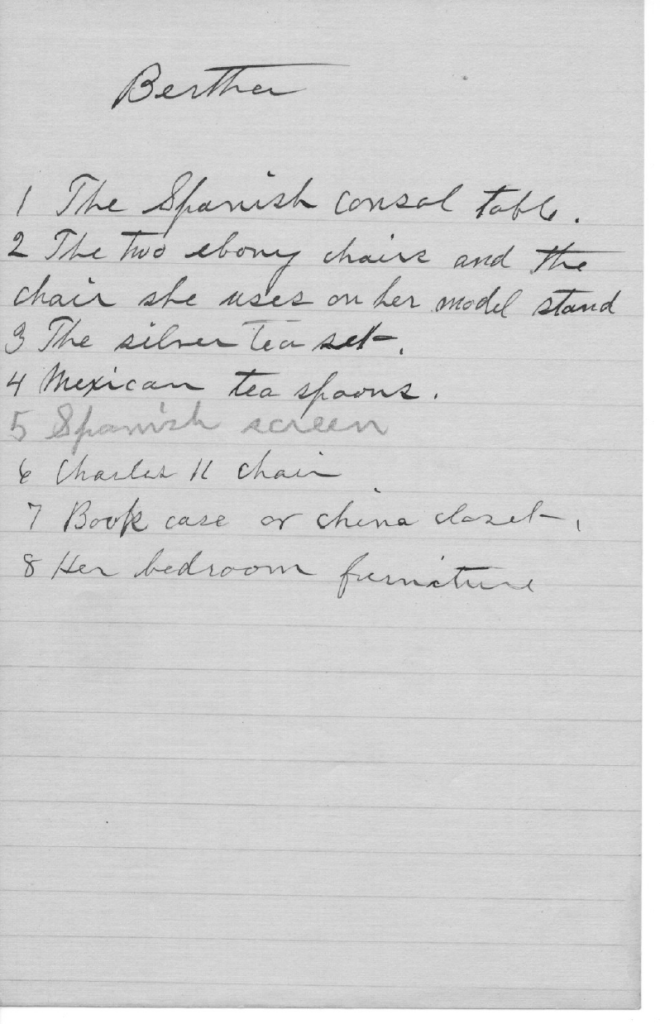 Bertha
1 The Spanish consol table.
2 The two ebony chairs and the
chair she uses on her model stand
3 The silver tea set.
4 Mexican tea spoons.
5 Spanish screen
6 Charles II chair
7 Book case or china closet.
8 Her bedroom furniture